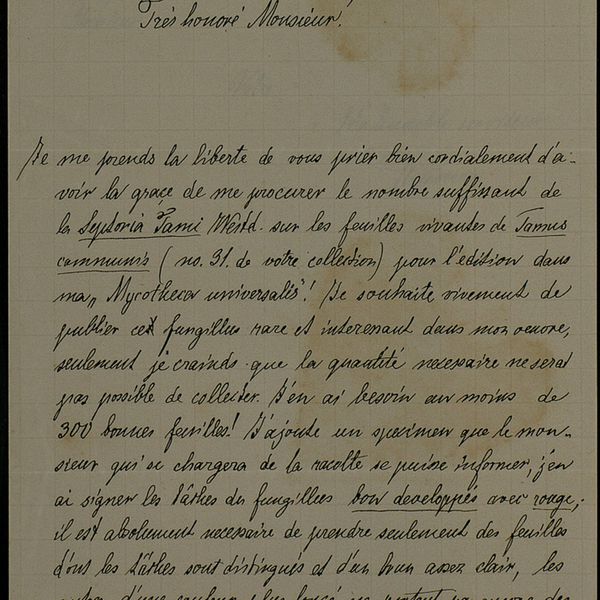 Très honoré Monsieur!
Je me prends la liberte de vous prier bien cordialement d'a-
voir la graçe de me procurer le nombre suffissant de
la Septoria Tami Westd. sur les feuilles vivantes de Tamus
communis (no. 31. de votre collection) pour l'édition dans
ma „Mycotheca universalis"! Je souhaite vivement de
publier cet fungillus rare et interenant dans mon oeuvre,
seulement je crainds que la quantité necessaire ne serai
pas possible de collecter. J'en ai besoin au moins de
300 bonnes feuilles! J'ajoute un specimen que le mon-
sieur qui se chargera de la racolte se puisse informer, j'en
ai signer les tâthes du fungillus bon developpés avec rouge;
il est absolument necessaire de prendre seulement des feuilles
d'ont les tâthes sont distingués et d'un brun assez clair, les
d'une couleur plus